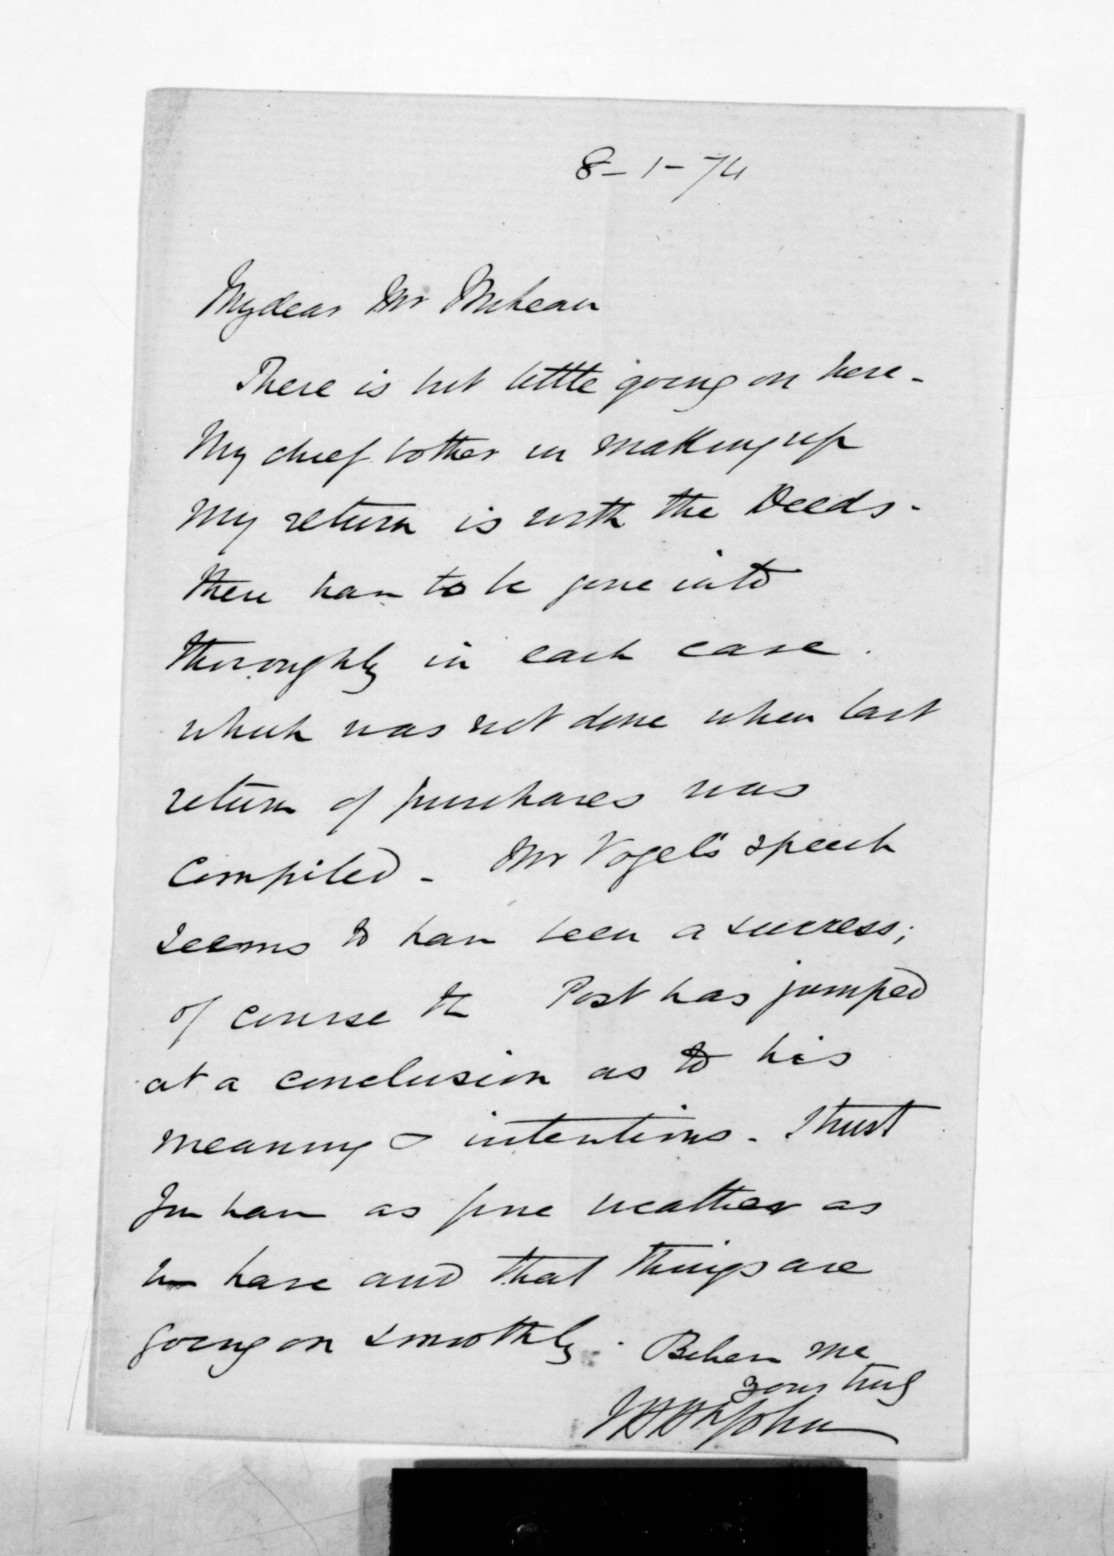 8-1-74
My dear Mr McLean
There is but little going on here -
My chief bother in making up
my return is with the Deeds -
these have to be gone into
thoroughly in each case.
which was not done when last
return of purchases was
compiled - Mr Vogel's speech
seems to have been a success;
of course the Post has jumped
at a conclusion as to his
meaning & intentions - I trust
you have as fine weather as
we have and that things are
going on smoothly. Believe me
yours truly
J H H St John